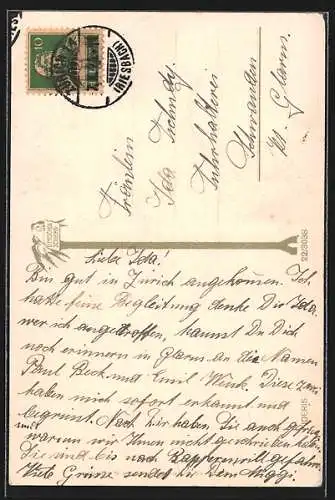 10
(RIESBACH)
Fräulein
Ida Schmidy.
Fuhrhalterei
Schwanden
Kt. Glarus.
22/3038
Liebe Ida!
Bin gut in Zürich angekommen. Ich
hatte feine Begleitung denke Dir Ida
wer ich angetroffen, kannst Du Dich
noch erinnern in Glarus an die Namen
Paul Beck und Emil Wenk. Diese zwei
haben mich sofort erkannt und
begrüsst. Nach Dir haben Sie auch gefragt
warum wir Ihnen nicht geschrieben
Sie sind bis nach Rapperswil gefahren
Viele Grüsse sendet Dir Dein